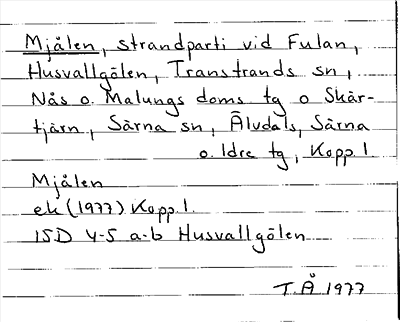 Mjålen, strandparti vid Fulan,
Husvallgölen, Transtrands sn,
Nås o. Malungs doms tg o Skär-
tjärn, Särna sn, Älvdals, Särna
o. Idre tg, Kopp. l.
Mjålen
ek (1977) Kopp. l.
15D 4-5 a-b Husvallgölen
T. Å 1977